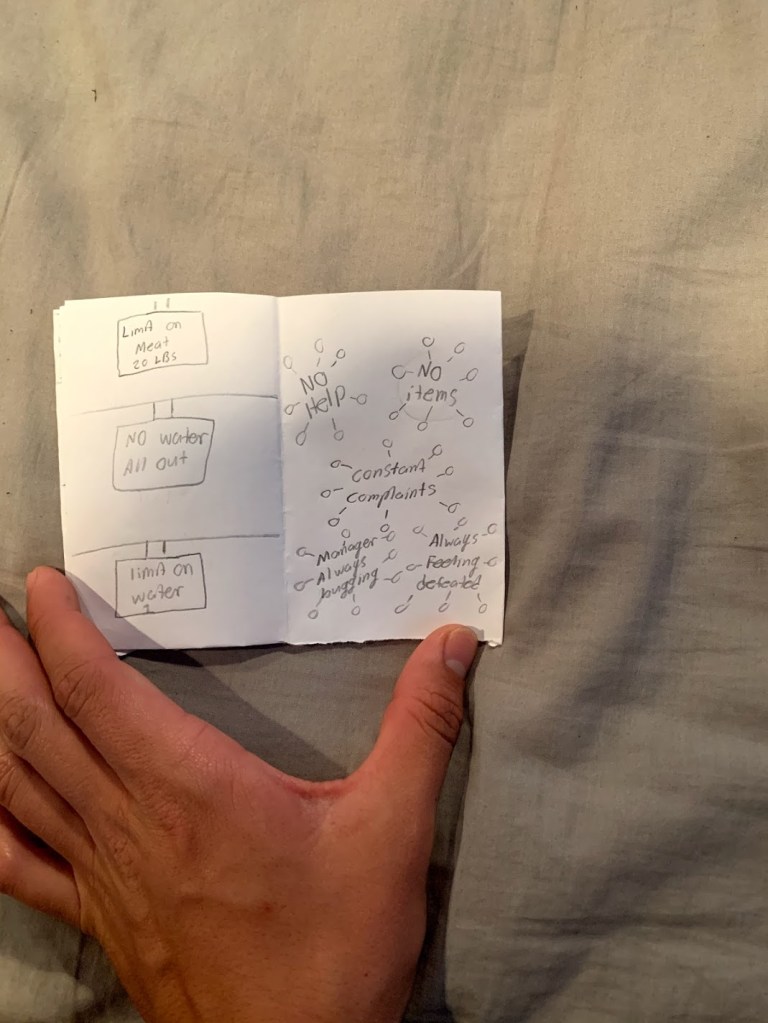 Limit on
Meat
20 LBs
NO water
All out
limit on
water
1
NO
Help
NO
items
constant
complaints
Manager
Always
bugging
Always
Feeling
defeated